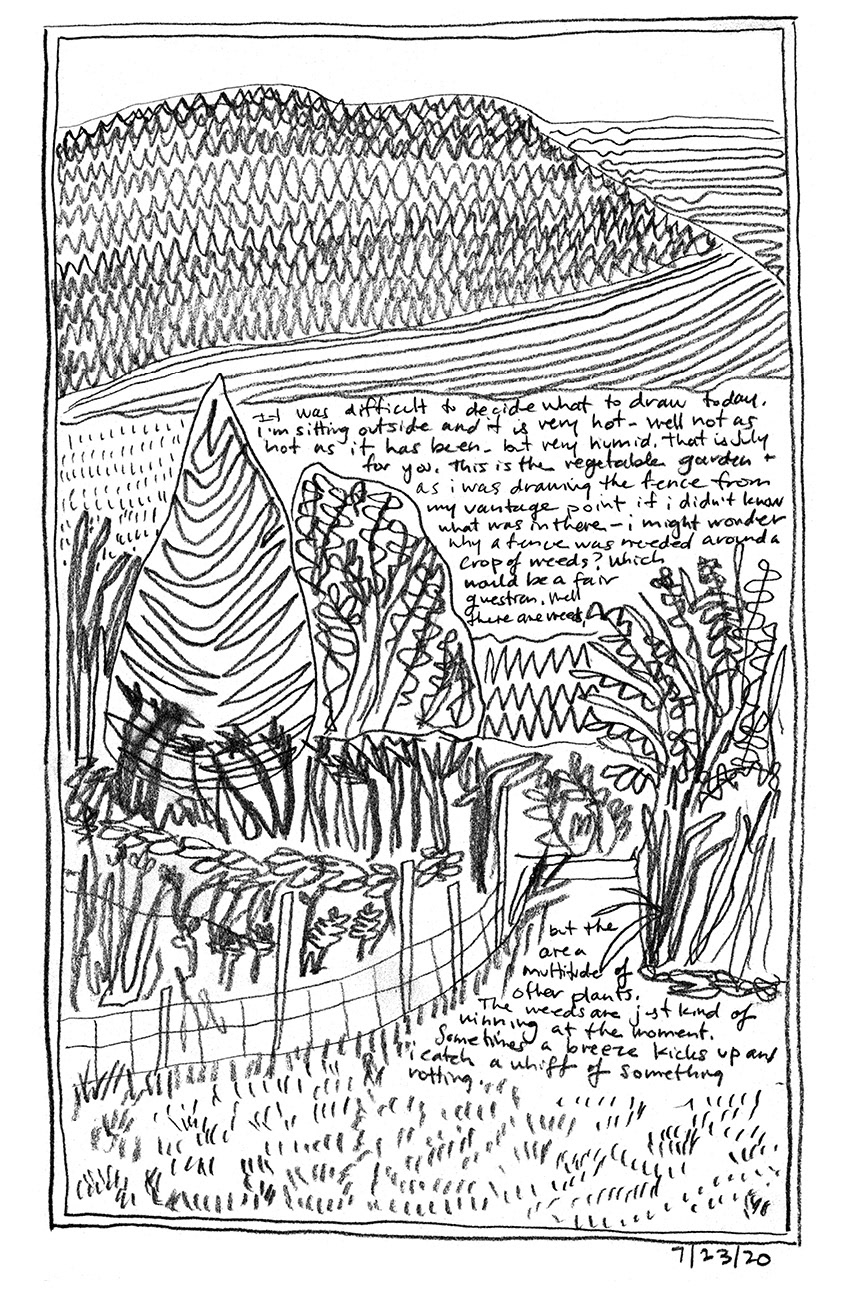 It was difficult to decide what to draw today.
i'm sitting outside and it is very hot - well not as
hot as it has been - but very humid. that is July
for you. this is the vegetable garden +
as i was drawing the fence from
my vantage point if i didn't know
what was in there - i might wonder
why a fence was needed around a
crop of weeds? Which
would be a fair
question. Well
there are weeds,
but the
are a
multitude of
other plants.
The weeds are just kind of
winning at the moment.
Sometimes a breeze kicks up and
i catch a whiff of something
rotting.
7/23/20